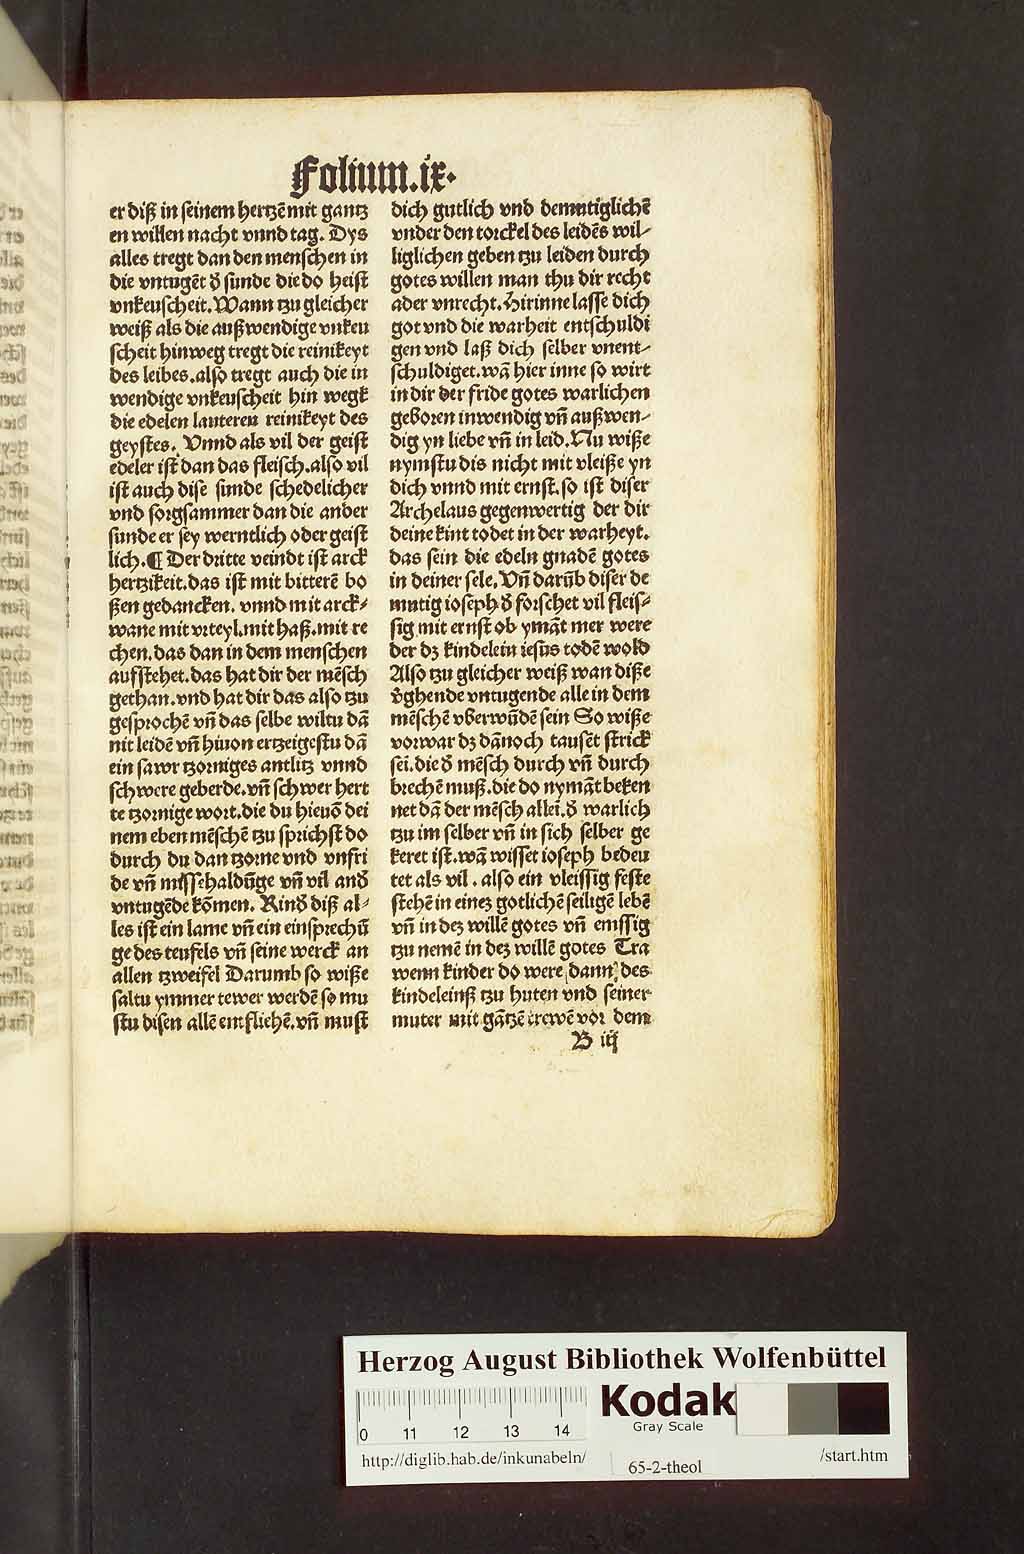 Folium.ix.
er diß in seinem hertzē mit gantz
en willen nacht vnnd tag. Dys
alles tregt dan den menschen in
die vntugēt ð sunde die do heist
vnkeuscheit. Wann tzu gleicher
weiß als die außwendige vnkeu
scheit hinweg tregt die reinikeyt
des leibes. also tregt auch die in
wendige vnkeuscheit hin wegk
die edelen lauteren reinikeyt des
geystes. Vnnd als vil der geist
edeler ist dan das fleisch. also vil
ist auch dise sunde schedelicher
vnd sorgsammer dan die ander
sunde er sey werntlich oder geist
lich. ¶ Der dritte veindt ist arck
hertzikeit. das ist mit bitterē bo
ßen gedancken. vnnd mit arck⸗
wane mit vrteyl. mit haß. mit re
chen. das dan in dem menschen
aufstehet. das hat dir der mēsch
gethan. vnd hat dir das also tzu
gesprochē vn̄ das selbe wiltu dā
nit leidē vn̄ hiuon ertzeigestu dā
ein sawr tzorniges antlitz vnnd
schwere geberde. vn̄ schwer hert
te tzornige wort. die du hieuō dei
nem eben mēschē tzu sprichst do
durch du dan tzorne vnd vnfri
de vn̄ missehaldūge vn̄ vil anð
vntugēde kōmen. Kinð diß al⸗
les ist ein lame vn̄ ein einsprechū
ge des teufels vn̄ seine werck an
allen tzweifel Darumb so wiße
saltu ymmer tewer werdē so mu
stu disen allē entfliehē. vn̄ must
dich gutlich vnd demutiglichē
vnder den torckel des leidēs wil⸗
liglichen geben tzu leiden durch
gotes willen man thu dir recht
ader vnrecht. Hirinne lasse dich
got vnd die warheit entschuldi
gen vnd laß dich selber vnent⸗
schuldiget. wā hier inne so wirt
in dir der fride gotes warlichen
geboren inwendig vn̄ außwen⸗
dig yn liebe vn̄ in leid. Nu wiße
nymstu dis nicht mit vleiße yn
dich vnnd mit ernst. so ist diser
Archelaus gegenwertig der dir
deine kint todet in der warheyt.
das sein die edeln gnadē gotes
in deiner sele. Vn̄ darūb diser de
mutig ioseph ð forschet vil fleis⸗
sig mit ernst ob ymāt mer were
der dz kindelein iesus todē wold
Also tzu gleicher weiß wan diße
v̄ghende vntugende alle in dem
mēschē vberwūdē sein So wiße
vorwar dz dānoch tausēt strick
sei. die ð mēsch durch vn̄ durch
brechē muß. die do nymāt beken
net dā der mēsch allei. ð warlich
tzu im selber vn̄ in sich selber ge
keret ist. wā wisset ioseph bedeu
tet als vil. also ein vleissig feste
stehē in einez gotlichē seiligē lebē
vn̄ in dez willē gotes vn̄ emssig
tzu nemē in dez willē gotes Tra
wenn kinder do were dann des
kindeleinß tzu huten vnd seiner
muter mit gātzē trewē vor dem
B iij
Herzog August Bibliothek Wolfenbüttel
0 11 12 13 14
Kodak
Gray Scale
http://diglib.hab.de/inkunabeln/
65-2-theol
/start.htm